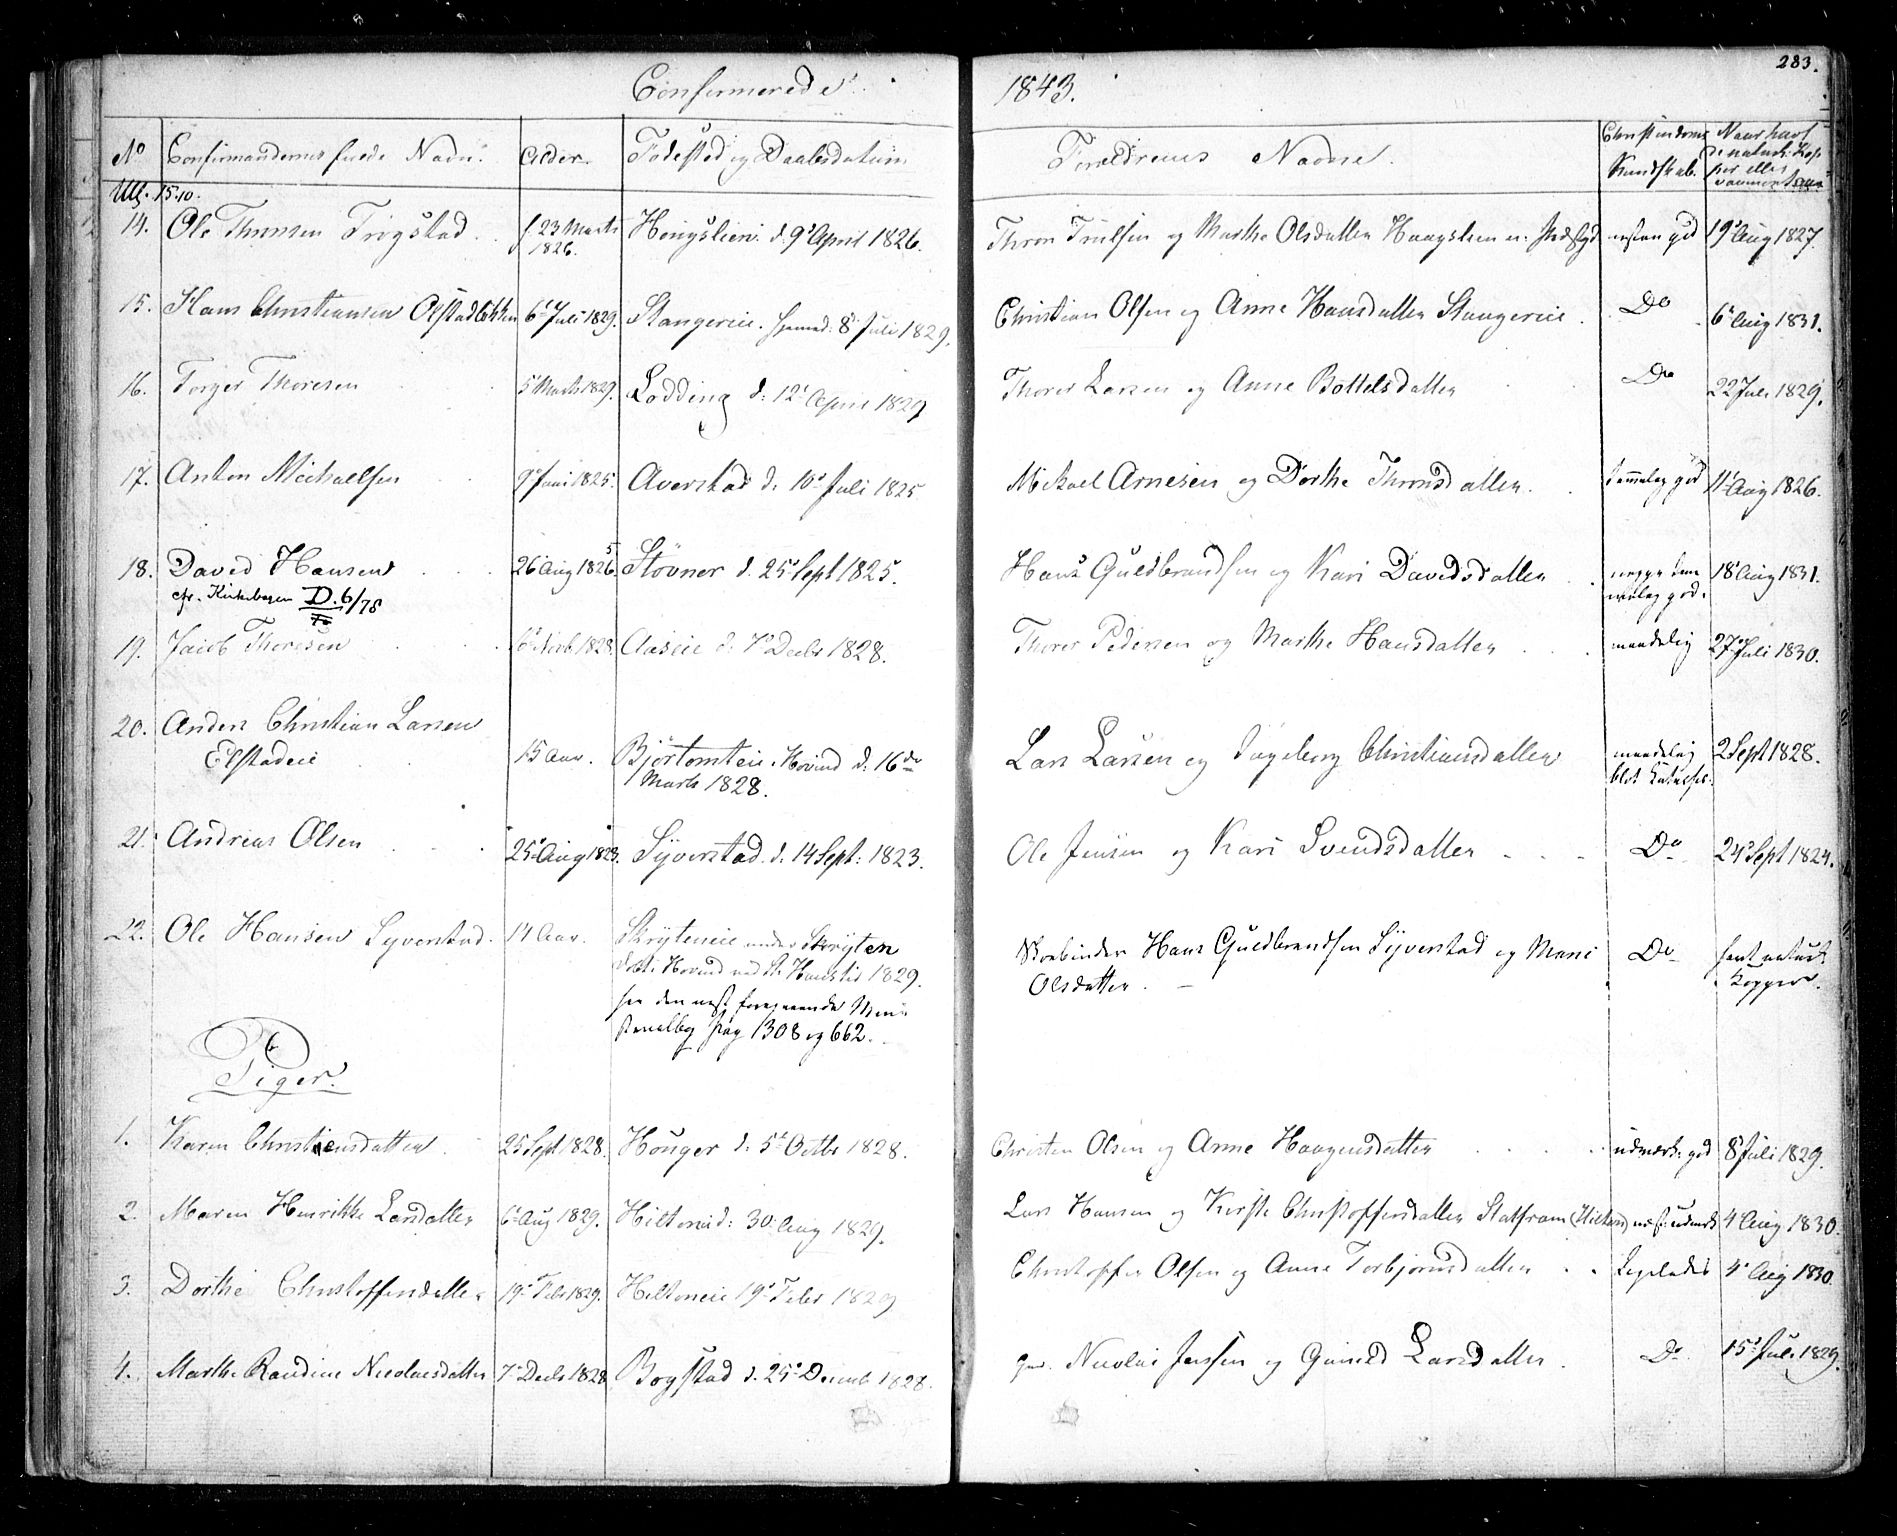 Confirmerede
1843.
283.
No Confirmandernes fulde Navn. Alder. Födested og Daabsdatum Forældrenes Navne. Christendoms Kundskab. Naar havt de naturl: Kop
14. Ole Thronsen Trögstad 23 Marts 1826. d. 9 April 1826. Thron Trulsen og Marthe Olsdatter næsten god 19 Aug 1827.
15. Hans Christiansen Olstadløkken 6 Juli 1829. Stangereie. hjemmed: 8 Juli 1829. Christian Olsen og Anne Hansdatter Stangereie Do 6 Aug 1831.
16. Torger Thoresen 5 Marts 1829. Lødding d: 12 April 1829 Thorer Larsen og Anne Bottelsdatter Do 22 Juli 1829.
17. Anton Michaelsen 9 Juni 1825. Averstad d. 10 Juli 1825 Mikael Arnesen og Dorthe Thronsdatter. temmelig god 11 Aug 1826.
18. David Hansen 26 Aug 1826 5 Støvner d. 25 Sept 1825. Hans Guldbrandsen og Kari Davidsdatter neppe temmelig god. 18 Aug 1831.
cfr. Kirkebogen D. 6/78
19. Jacob Thoresen 6 Novb 1828. Aaseie d. 7 Decbr 1828. Thorer Pedersen og Marthe Hansdatter maadelig 27 Juli 1830.
20. Anders Christian Larsen
Elstadeie 15 Aar. Bjørtomteie. Hovind d. 16de Marts 1828. Lars Larsen og Ingeborg Christiansdatter maadelig blot 2 Sept 1828.
21. Andreas Olsen 25 Aug 1823. Syverstad d. 14 Sept: 1823. Ole Jensen og Kari Svendsdatter Do 24 Sept 1824.
22. Ole Hansen Syverstad. 14 Aar. Skrÿteneie under Skrÿten
døbt i Hovind ved St Hanstid 1829.
see den næst foregaaende
pag 1308 og 662.
Hans Guldbrandsen Syverstad og Mari
Olsdatter. Do havt naturl. Kopper.
Piger.
1. Karen Christiensdatter 25 Sept 1828. Houger d. 5 Octbr 1828. Christen Olsen og Anne Haagensdatter udmærk: god 8 Juli 1829.
2. Maren Henrikke Larsdatter 6 Aug 1829. Hilton d: 30 Aug 1829. Lars Hansen og Kirste Christoffersdatter (Hilton) 4 Aug 1830.
3. Dorthe Christoffersdatter 19 Febr 1829. Hiltoneie 19 Febr 1829 Christopher Olsen og Anne Torbjørnsdatter 4 Aug 1830.
4. Marthe Randine Nicolaisdatter 7 Decbr 1828 Bogstad d. 25 Decemb 1828. Nicolai Jensen og Gunild Larsdatter. Do 15 Juli 1829.